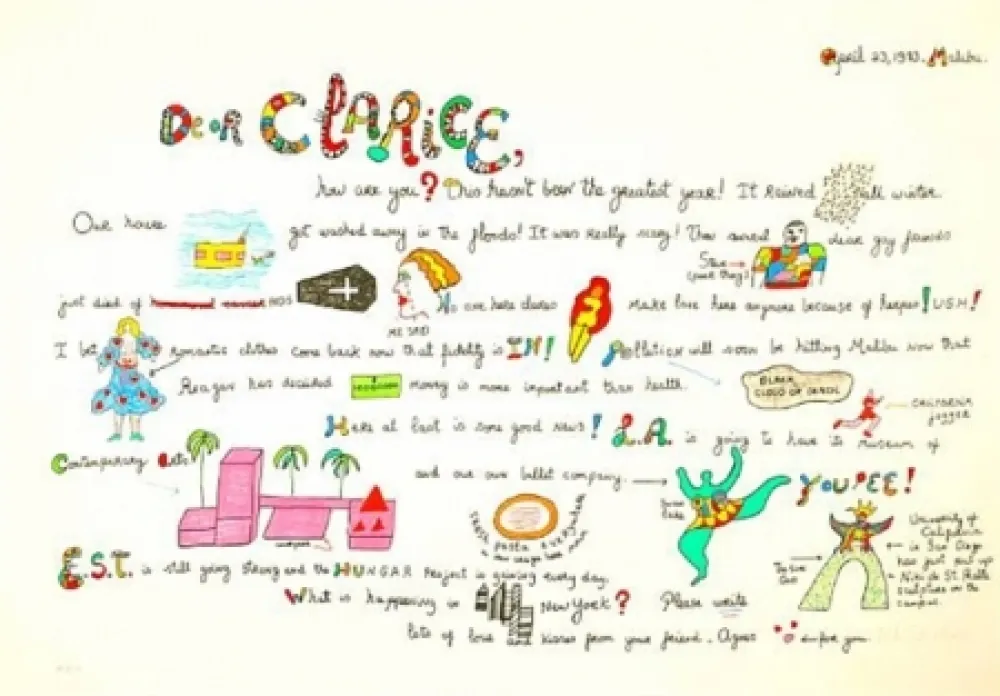 April 23, 1983. Malibu.
Dear CLARICE,
how are you? This hasn't been the greatest year! It rained all winter.
Our house got washed away in the floods! It was really scary! Three dear gay friends
just died of AIDS No one here dares make love here anymore because of herpes! USH!
ME SAD
I bet romantic clothes come back now that fidelity is IN! Pollution will soon be hitting Malibu now that
Reagan has decided money is more important than health.
BLACK CLOUD OF
CALIFORNIA jogger
Here at last is some good news! L.A. is going to have its museum of
Contemporary Arts and our own ballet company. YOUPEE!
fresh pasta everywhere
E.S.T. is still going strong and the HUNGAR Project is growing every day.
University of California in San Diego has just put up Niki de St. Phalle sculpture on the campus.
What is happening in New York? Please write
lots of love and kisses from your friend. Agnes for you.